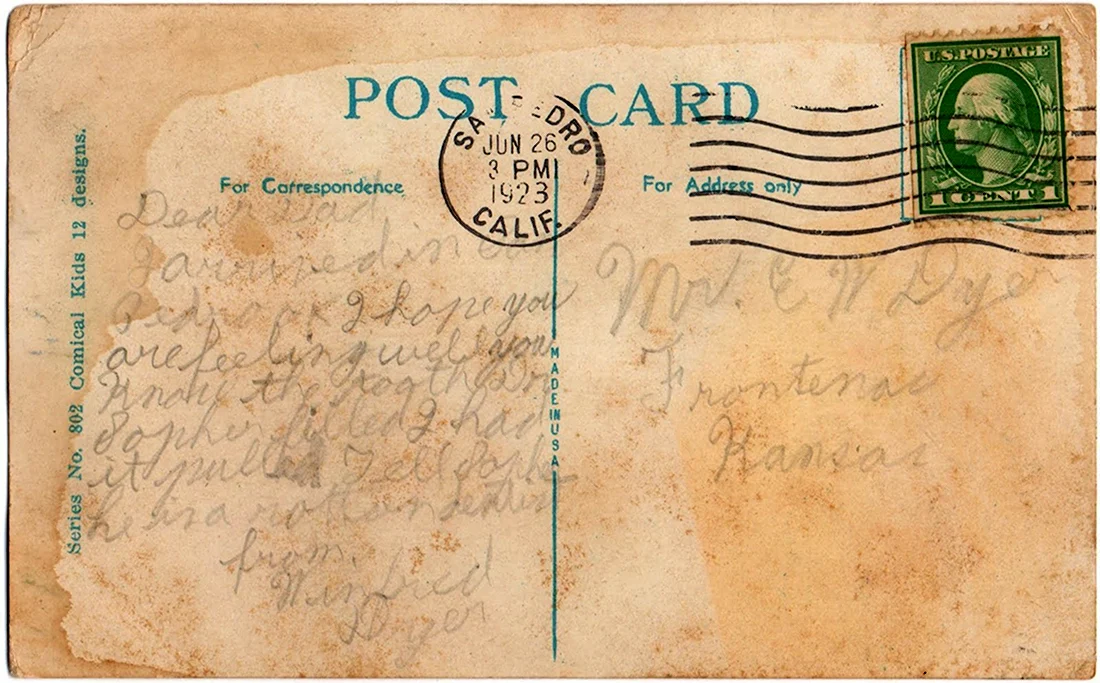 POST CARD
U.S. POSTAGE
1 CENT 1
SAN PEDRO
JUN 26
3 PM
1923
CALIF.
For Correspondence
For Address only
Series No. 302 Comical Kids 12 designs.
MADE IN USA
Dear Dad,
I arrived in San
Pedro I hope you
are feeling well you
know the tooth Dr.
filled I had
it pulled Tell
he is a rotten dentist
from,
Winfred
Dyer
Mr. E W Dyer
Frontenac
Kansas